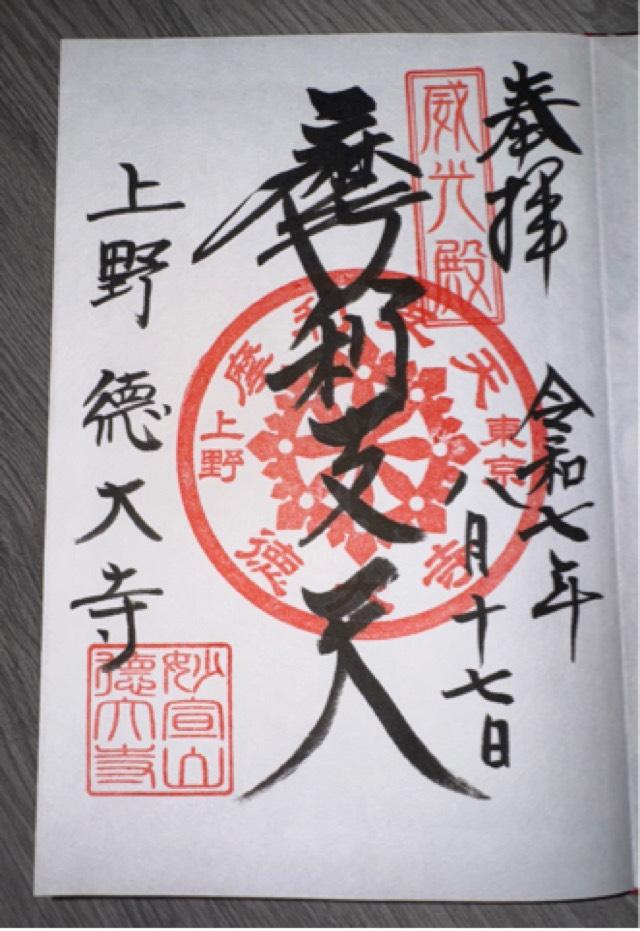 奉拝
令和七年
八月十七日
威光殿
摩利支天
摩利支天
東京
上野
徳大寺
上野 徳大寺
妙宣山
徳大寺